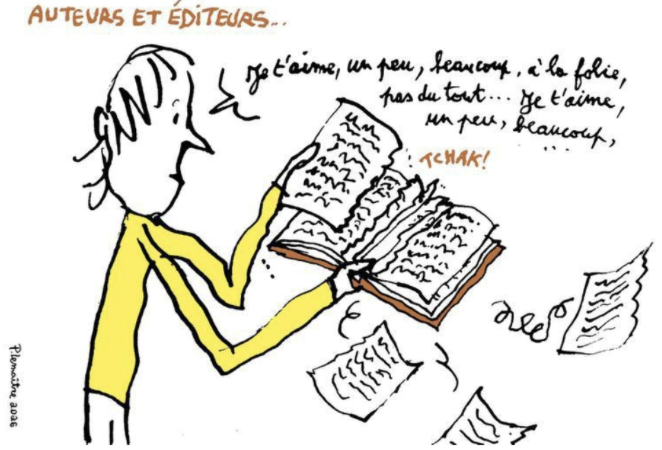 AUTEURS ET ÉDITEURS...
Je t'aime, un peu, beaucoup, à la folie,
pas du tout... Je t'aime,
un peu, beaucoup,
...
TCHAK!
P.lemaître 2026